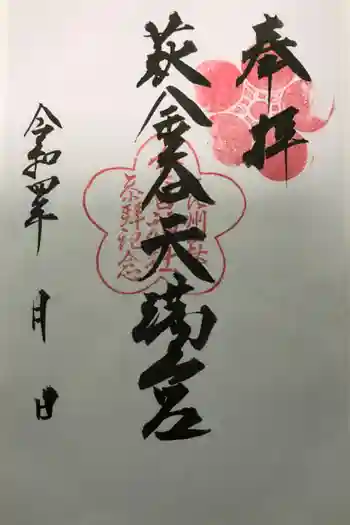 奉拝
荻金谷天満宮
参拝記念
令和四年 月 日